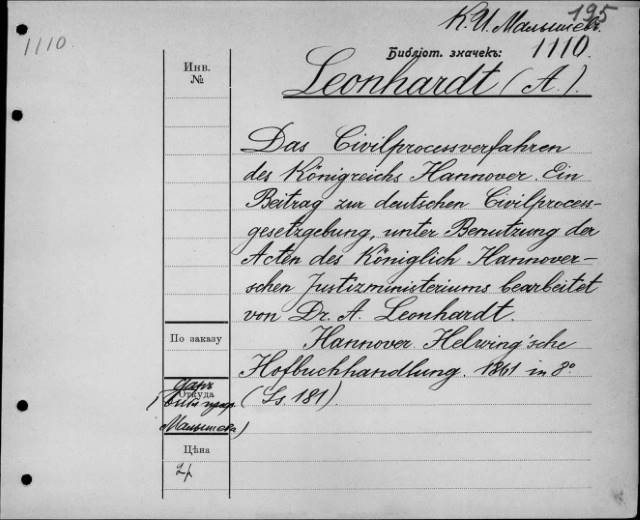 195
К. И. Малышевъ.
1110
Библіот. значекъ: 1110.
Инв.
№
Leonhardt (A.).
Das Civilprocessverfahren
des Königreichs Hannover. Ein
Beitrag zur deutschen Civilprocess-
gesetzgebung, unter Benutzung der
Acten des Königlich Hannover-
schen Justizministeriums bearbeitet
von Dr. A. Leonhardt.
Hannover. Helwing'sche
Hofbuchhandlung. 1861 in 8°
(Ss. 181).
По заказу
Даръ
Откуда
Малышева)
Цѣна
2р